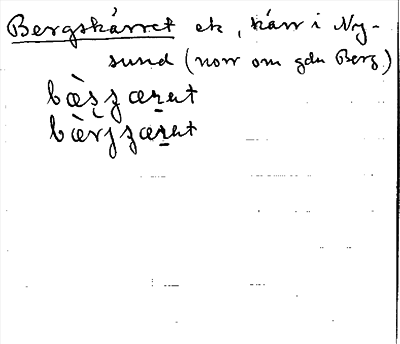 Bergskärret ek, kärr i Ny-
sund (norr om gdn Berg)
bæ̀ṣʒærət
bæ̀rjʒærət